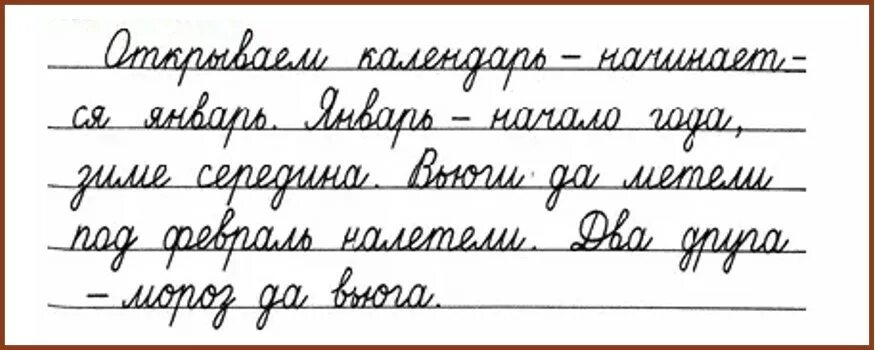 Открываем календарь – начинает-
ся январь. Январь – начало года,
зиме середина. Вьюги да метели
под февраль налетели. Два друга
– мороз да вьюга.